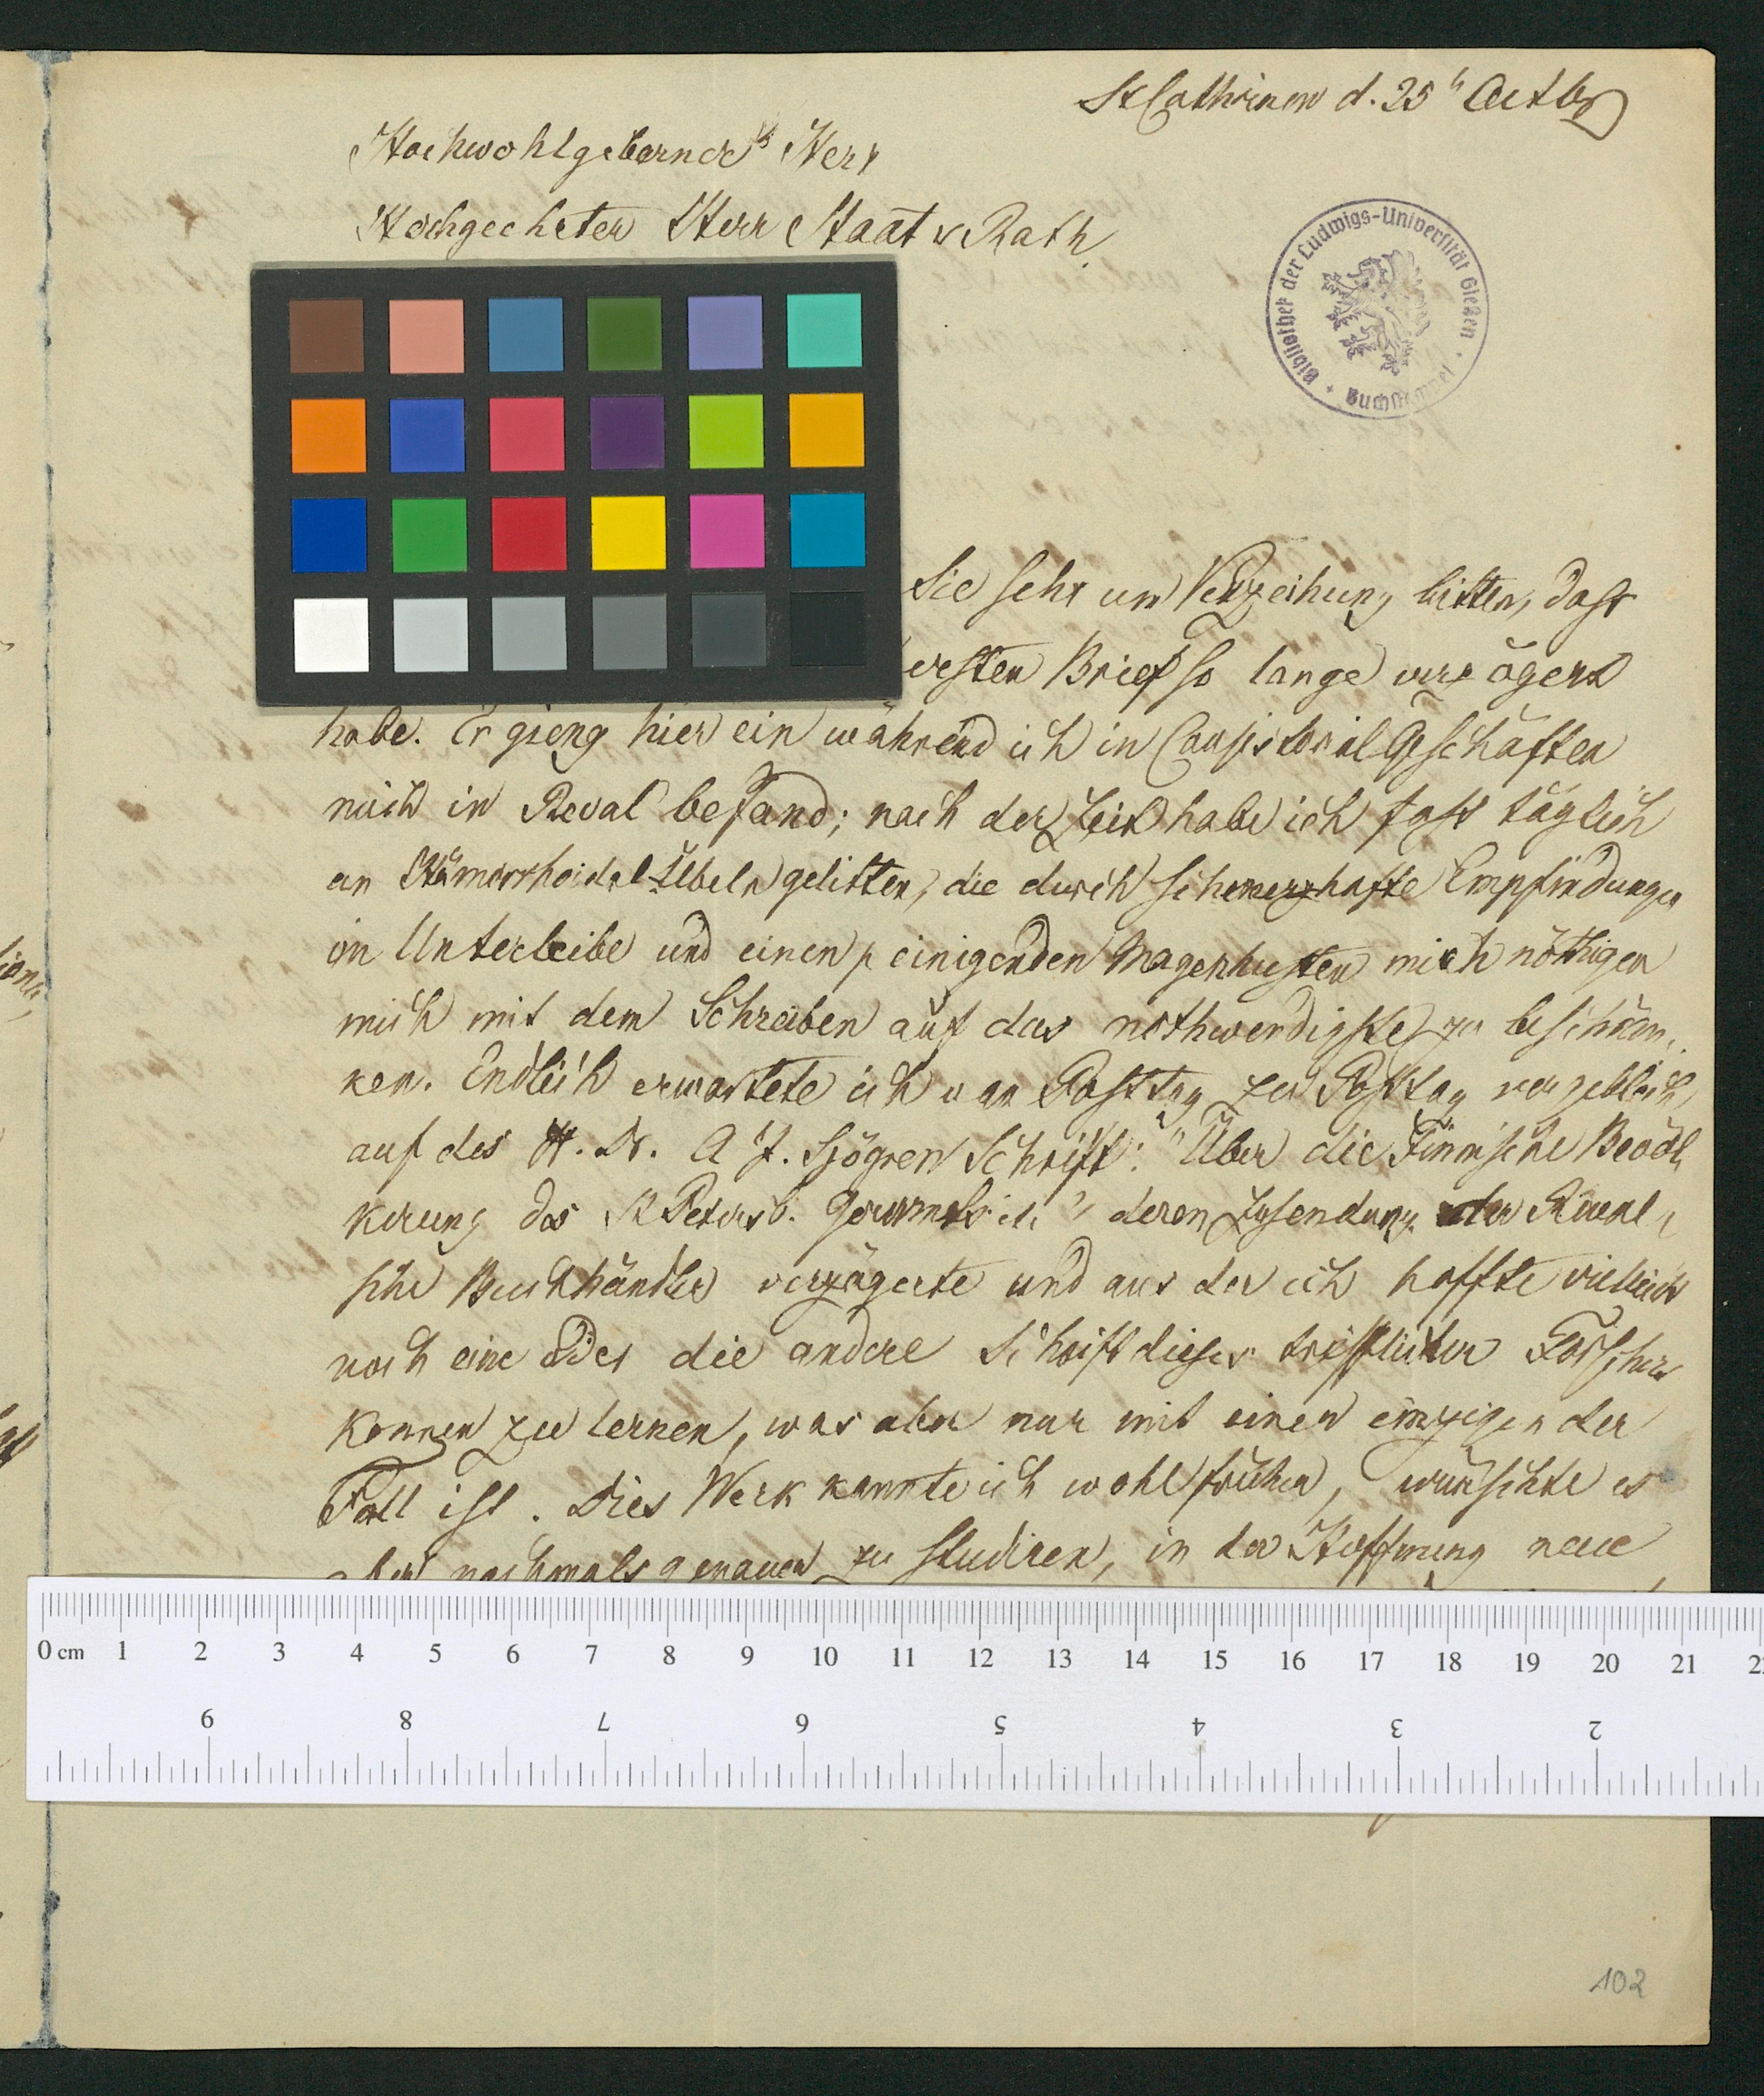 St Cathrinen d. 25" Octbr
Hochwohlgeborner Herr
Hochgeehrter Herr Staats Rath.
Bibliothek der Ludwigs-Universität Gießen
Buchstempel
Sie sehr um Verzeihung bitten, dass
ersten Brief so lange verzögert
habe. Er gieng hier ein während ich in Consistorial Geschäften
mich in Reval befand; nach der Zeit habe ich fast täglich
an Hämorrhoidal-Übeln gelitten, die durch schmerzhafte Empfindungen
im Unterleibe und einen peinigenden Magenhusten mich nöthigen
mich mit dem Schreiben auf das nothwendigste zu beschrän-
ken. Endlich erwartete ich von Posttag zu Posttag vergeblich
auf des H. Dr. A J. Sjögren Schrift: "Über die Finnische Bevöl-
kerung des St Petersb. Gouvernmts etc" deren Zusendung der Reval-
sche Buchhändler verzögerte und aus der ich hoffte vielleicht
noch eine oder die andere Schrift dieses trefflichen Forschers
kennen zu lernen, was aber nur mit einer einzigen der
Fall ist. Dies Werk kannte ich wohl früher, wünschte es
aber nochmals genauer zu studiren, in der Hoffnung neue
0 cm 1 2 3 4 5 6 7 8 9 10 11 12 13 14 15 16 17 18 19 20 21
9 8 7 6 5 4 3 2
102